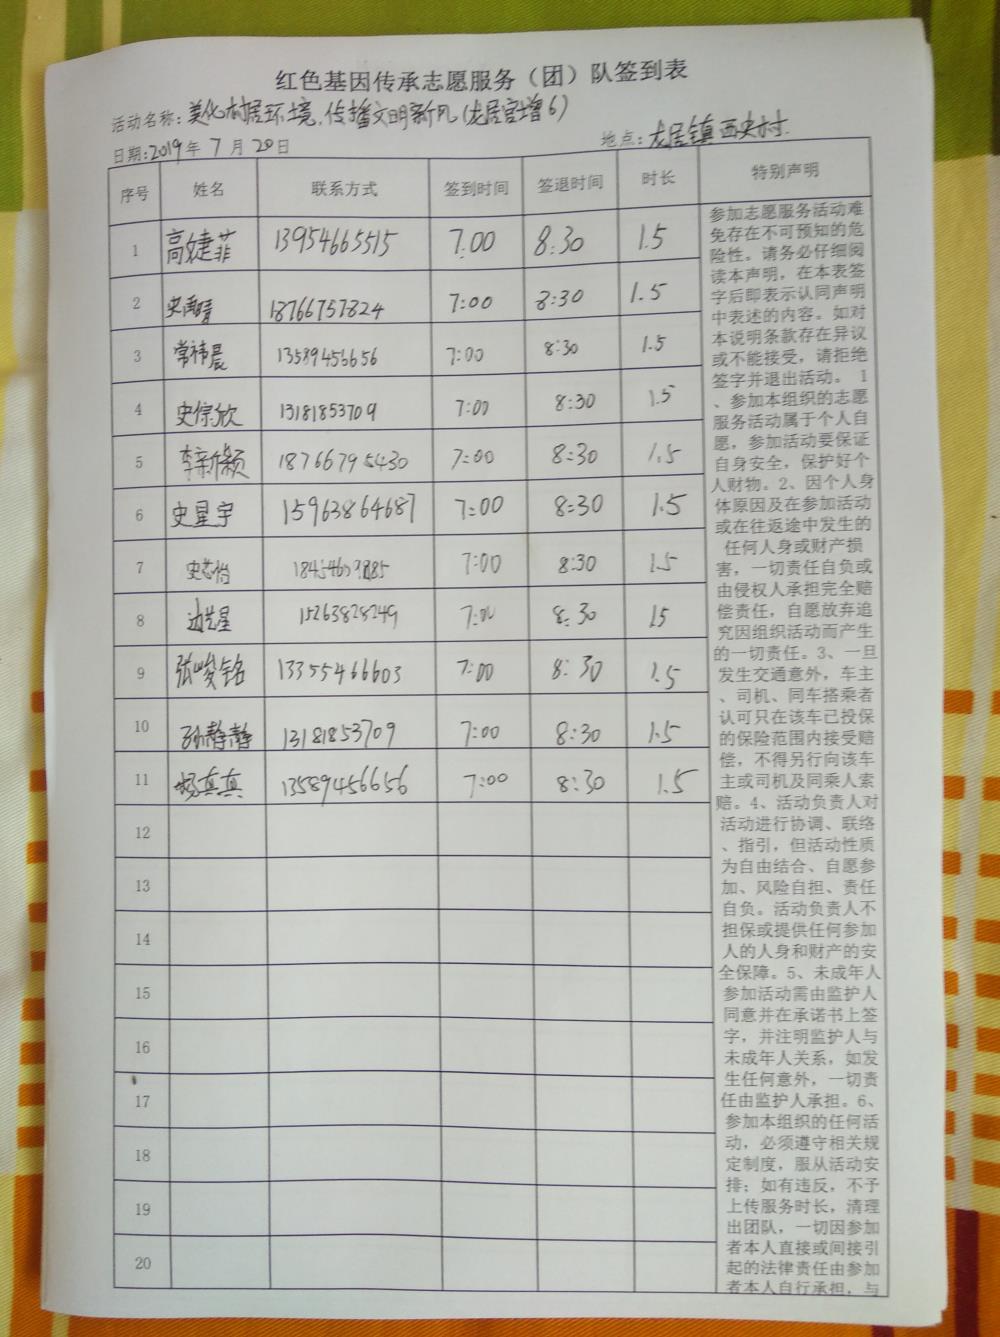 红色基因传承志愿服务（团）队签到表
活动名称：美化村居环境，传播文明新风（龙居官增6）
日期：2019年7月20日
地点：龙居镇西史村
序号 姓名 联系方式 签到时间 签退时间 时长 特别声明
1 高婕菲 13954665515 7:00 8:30 1.5
2 史雨晴 18766757824 7:00 8:30 1.5
3 常祎晨 13589456656 7:00 8:30 1.5
4 史倧欣 13181853709 7:00 8:30 1.5
5 李新颖 18766795430 7:00 8:30 1.5
6 史星宇 15963864687 7:00 8:30 1.5
7 7:00 8:30 1.5
8 边艺星 15263828249 7:00 8:30 15
9 张峻铭 13355466603 7:00 8:30 1.5
10 孙静静 13181853709 7:00 8:30 1.5
11 杨真真 13589456656 7:00 8:30 1.5
12
13
14
15
16
17
18
19
20
参加志愿服务活动难
免存在不可预知的危
险性。请务必仔细阅
读本声明，在本表签
字后即表示认同声明
中表述的内容。如对
本说明条款存在异议
或不能接受，请拒绝
签字并退出活动。 1
、参加本组织的志愿
服务活动属于个人自
愿，参加活动要保证
自身安全，保护好个
人财物。2、因个人身
体原因及在参加活动
或在往返途中发生的
任何人身或财产损
害，一切责任自负或
由侵权人承担完全赔
偿责任，自愿放弃追
究因组织活动而产生
的一切责任。3、一旦
发生交通意外，车主
、司机、同车搭乘者
认可只在该车已投保
的保险范围内接受赔
偿，不得另行向该车
主或司机及同乘人索
赔。4、活动负责人对
活动进行协调、联络
、指引，但活动性质
为自由结合、自愿参
加、风险自担、责任
自负。活动负责人不
担保或提供任何参加
人的人身和财产的安
全保障。5、未成年人
参加活动需由监护人
同意并在承诺书上签
字，并注明监护人与
未成年人关系，如发
生任何意外，一切责
任由监护人承担。6、
参加本组织的任何活
动，必须遵守相关规
定制度，服从活动安
排；如有违反，不予
上传服务时长，清理
出团队，一切因参加
者本人直接或间接引
起的法律责任由参加
者本人自行承担，与